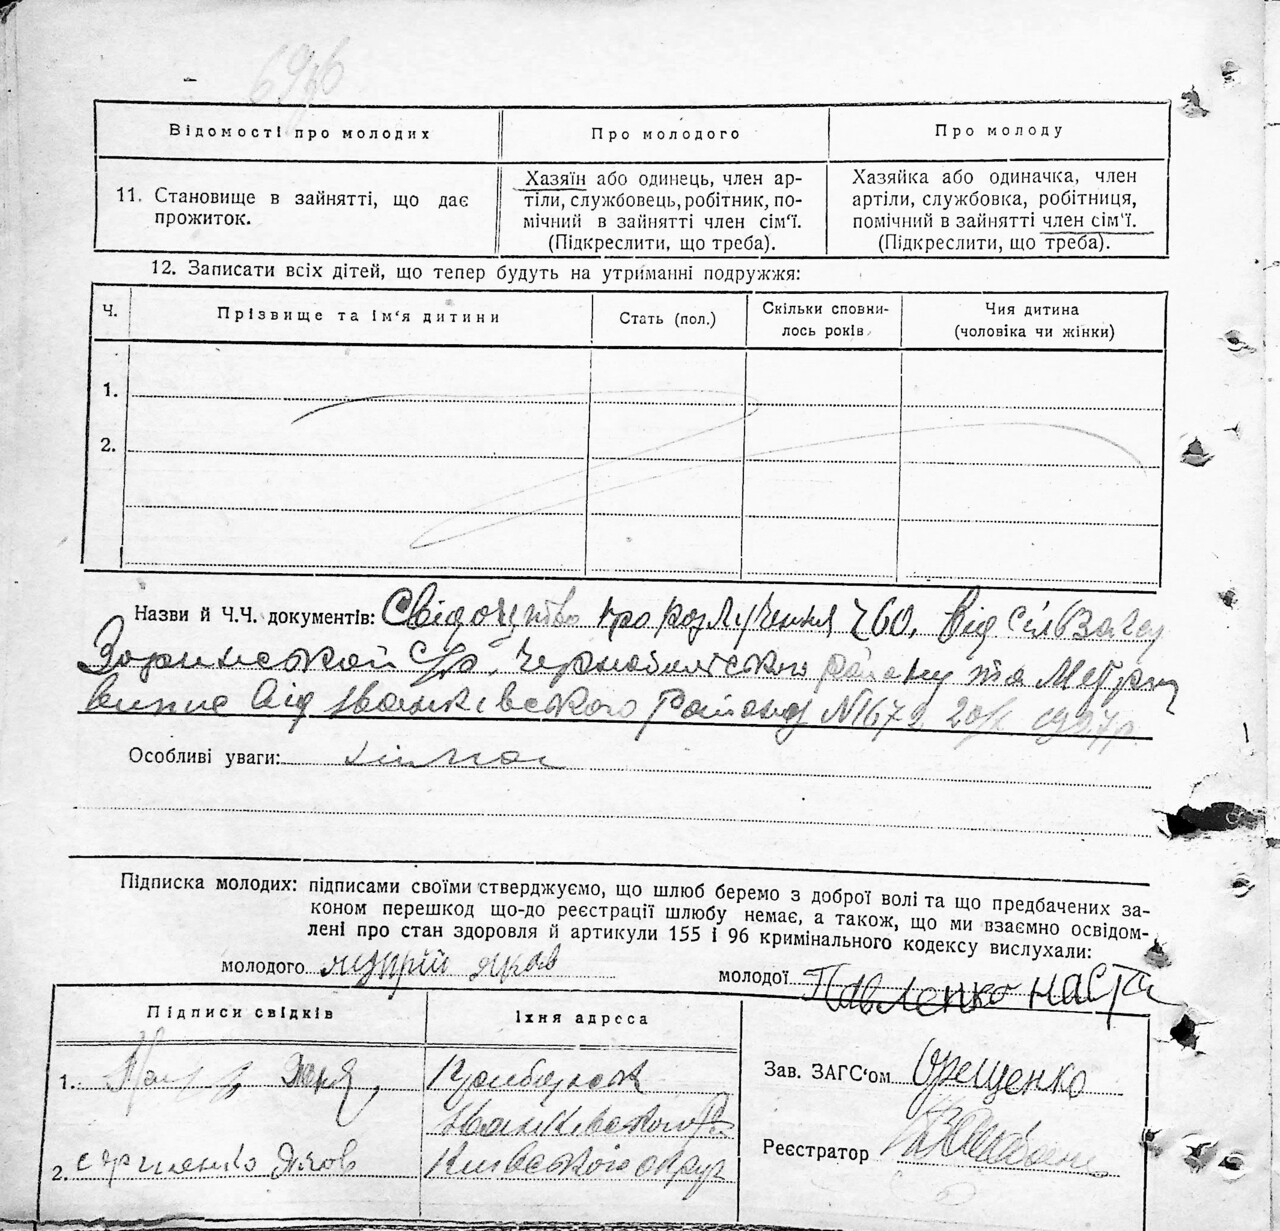 Відомості про молодих
Про молодого
Про молоду
11. Становище в зайнятті, що дає
прожиток.
Хазяїн або одинець, член ар-
тіли, службовець, робітник, по-
мічний в зайнятті член сім'ї.
(Підкреслити, що треба).
Хазяйка або одиначка, член
артіли, службовка, робітниця,
помічний в зайнятті член сім'ї.
(Підкреслити, що треба).
12. Записати всіх дітей, що тепер будуть на утриманні подружжя:
Ч.
Прізвище та ім'я дитини
Стать (пол.)
Скільки сповни-
лось років
Чия дитина
(чоловіка чи жінки)
1.
2.
Назви й Ч.Ч. документів: Свідоцтво про розлучення Ч60, від
району та
від Іванківського Району N1672
Особливі уваги: німає
Підписка молодих: підписами своїми стверджуємо, що шлюб беремо з доброї волі та що предбачених за-
коном перешкод що-до реєстрації шлюбу немає, а також, що ми взаємно освідом-
лені про стан здоровля й артикули 155 і 96 кримінального кодексу вислухали:
молодого
молодої Павленко Наста
Підписи свідків
Їхня адреса
1.
Іванківського
2. Сергиенко Яков
Київського округ
Зав. ЗАГС'ом Орещенко
Реєстратор